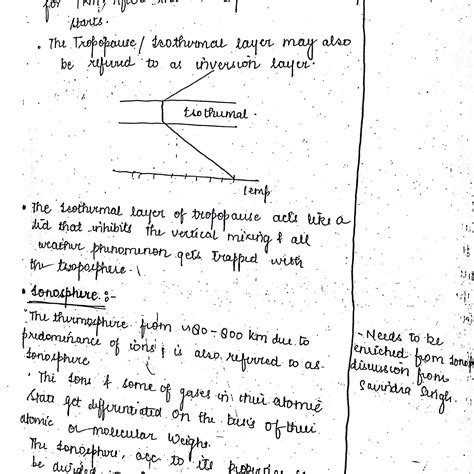 starts.
• The Tropopause / Isothermal layer may also
be referred to as inversion layer.
Isothermal
temp
• The Isothermal layer of tropopause acts like a
lid that inhibits the vertical mixing & all
weather phenomenon gets trapped with
the troposphere.
• Ionosphere :-
The thermosphere from 80-800 km due to
predominance of ions, is also referred to as
Ionosphere
• The Ions & some of gases in their atomic
state get differentiated on the basis of their
atomic or molecular weight.
The Ionosphere, acc to its
be
- Needs to be
enriched from
discussion from
Savindra Singh.